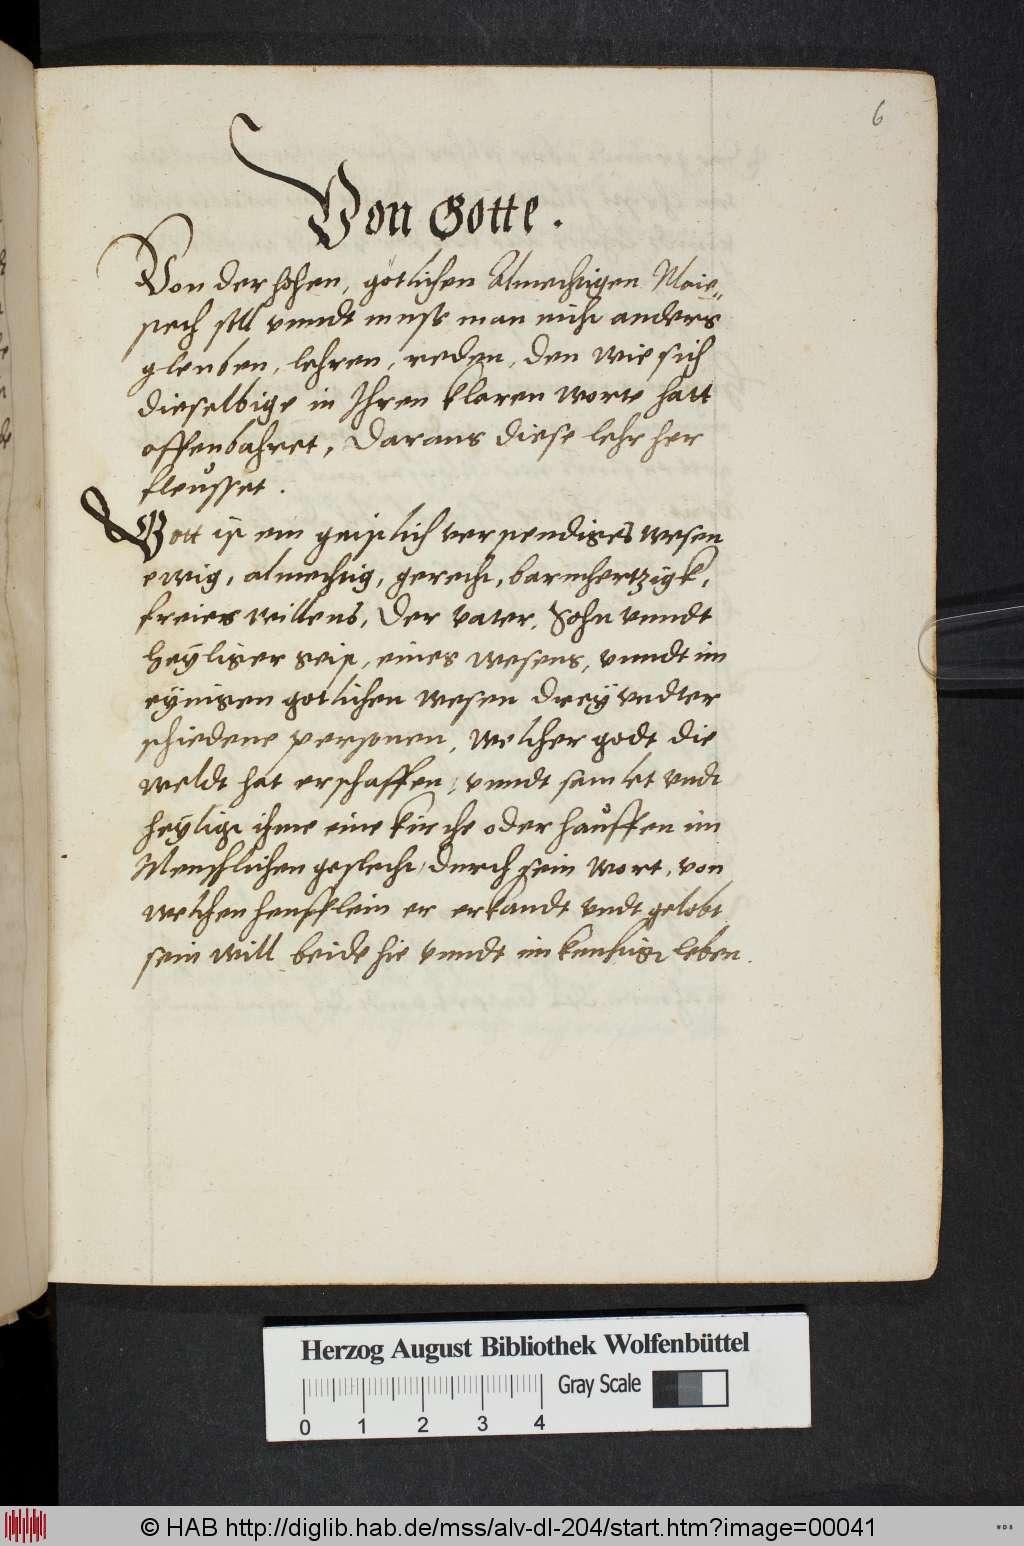 6
Von Gotte.
Von der hohen, götlichen Almechtigen Maie„
stech soll vnndt muss man nicht anders
gleuben, lehren, reden, den wie sich
dieselbige in Ihren klaren worte hatt
offenbahret, Daraus diese lehr her
fleusset.
Gott ist ein geistlich verstendiges wesen
ewig, almechtig, gerecht, barmhertzigk,
freies willens, Der vater, Sohn vnndt
Heyliger Geist, eines wesens, vnndt im
eynigen gotlichen wesen drey vndter
schiedene personen, welcher godt die
weldt hat erschaffen, vnndt samlet vndt
heyligt ihme eine kirche oder hauffen im
Menschlichen geslecht, durch sein wort, von
welchen heufflein er erkandt vndt gelobt
sein will beide hie vnndt im leben.
Herzog August Bibliothek Wolfenbüttel
0 1 2 3 4 Gray Scale
© HAB http://diglib.hab.de/mss/alv-dl-204/start.htm?image=00041